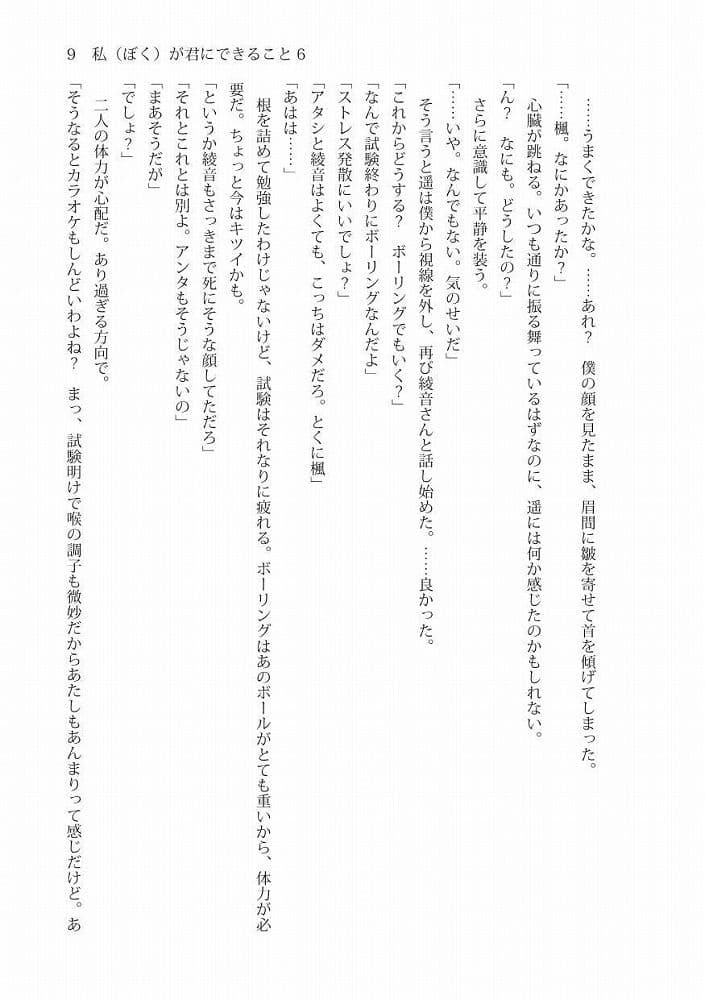 9　私（ぼく）が君にできること 6
……うまくできたかな。……あれ？　僕の顔を見たまま、眉間に皺を寄せて首を傾げてしまった。
「……楓。なにかあったか？」
心臓が跳ねる。いつも通りに振る舞っているはずなのに、遥には何か感じたのかもしれない。
「ん？　なにも。どうしたの？」
さらに意識して平静を装う。
「……いや。なんでもない。気のせいだ」
そう言うと遥は僕から視線を外し、再び綾音さんと話し始めた。……良かった。
「これからどうする？　ボーリングでもいく？」
「なんで試験終わりにボーリングなんだよ」
「ストレス発散にいいでしょ？」
「アタシと綾音はよくても、こっちはダメだろ。とくに楓」
「あはは……」
根を詰めて勉強したわけじゃないけど、試験はそれなりに疲れる。ボーリングはあのボールがとても重いから、体力が必
要だ。ちょっと今はキツイかも。
「というか綾音もさっきまで死にそうな顔してただろ」
「それとこれとは別よ。アンタもそうじゃないの」
「まあそうだが」
「でしょ？」
二人の体力が心配だ。あり過ぎる方向で。
「そうなるとカラオケもしんどいわよね？　まっ、試験明けで喉の調子も微妙だからあたしもあんまりって感じだけど。あ